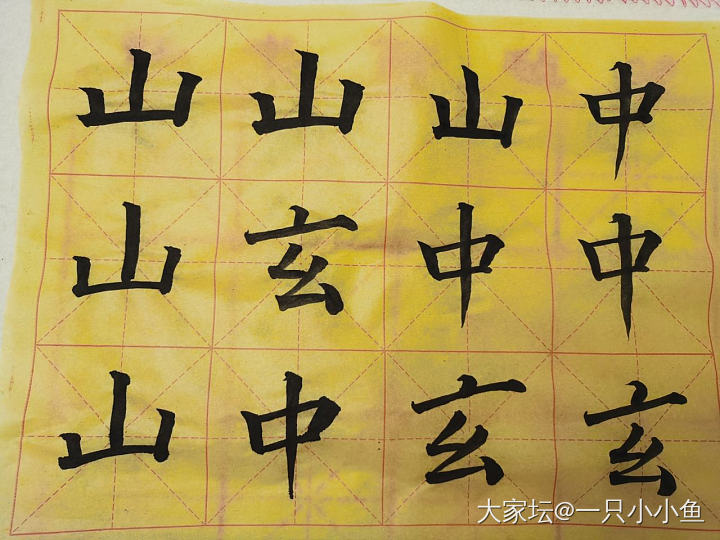 山山山中
山玄中中
山中玄玄
大家坛@一只小小鱼